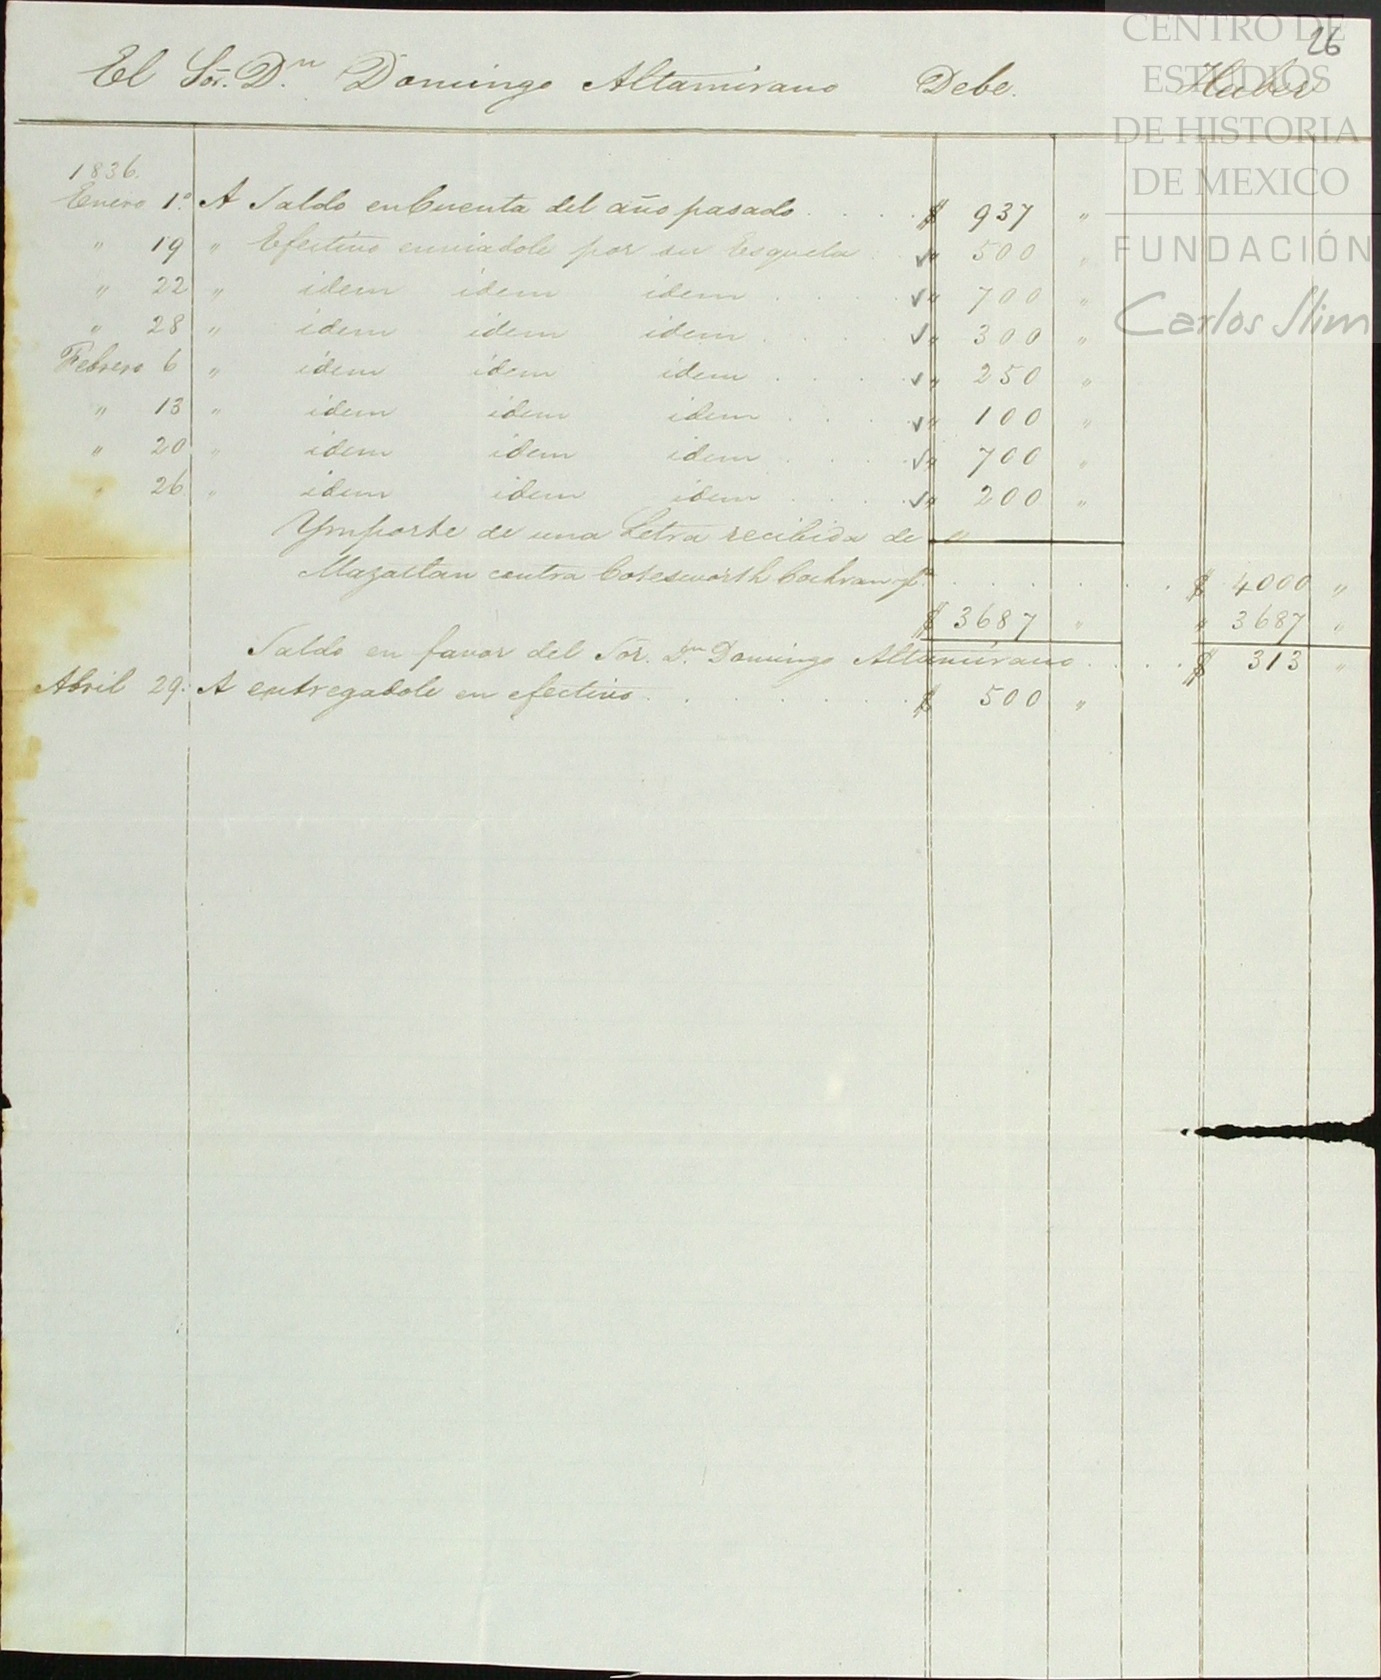 26
El Sor. Dn. Domingo Altamirano Debe. Haber
1836.
Enero 1º. A Saldo en Cuenta del año pasado . . . . $ 937 "
" 19 " Efectivo enviadole por su Esquela . ✓" 500 "
" 22 " idem idem idem . . . . ✓" 700 "
" 28 " idem idem idem . . . . ✓" 300 "
Febrero 6 " idem idem idem . . . . ✓" 250 "
" 13 " idem idem idem . . . . ✓" 100 "
" 20 " idem idem idem . . . . ✓" 700 "
" 26 " idem idem idem . . . . ✓" 200 "
Ymporte de una Letra recibida de
Mazatlan contra Cotesworth Cochran . . . . . . $ 4000 "
$ 3687 " " 3687 "
Saldo en favor del Sor. Dn. Domingo Altamirano . . . . $ 313 "
Abril 29. A entregadole en efectivo . . . . . . . $ 500 "
CENTRO DE
ESTUDIOS
DE HISTORIA
DE MEXICO
FUNDACIÓN
Carlos Slim